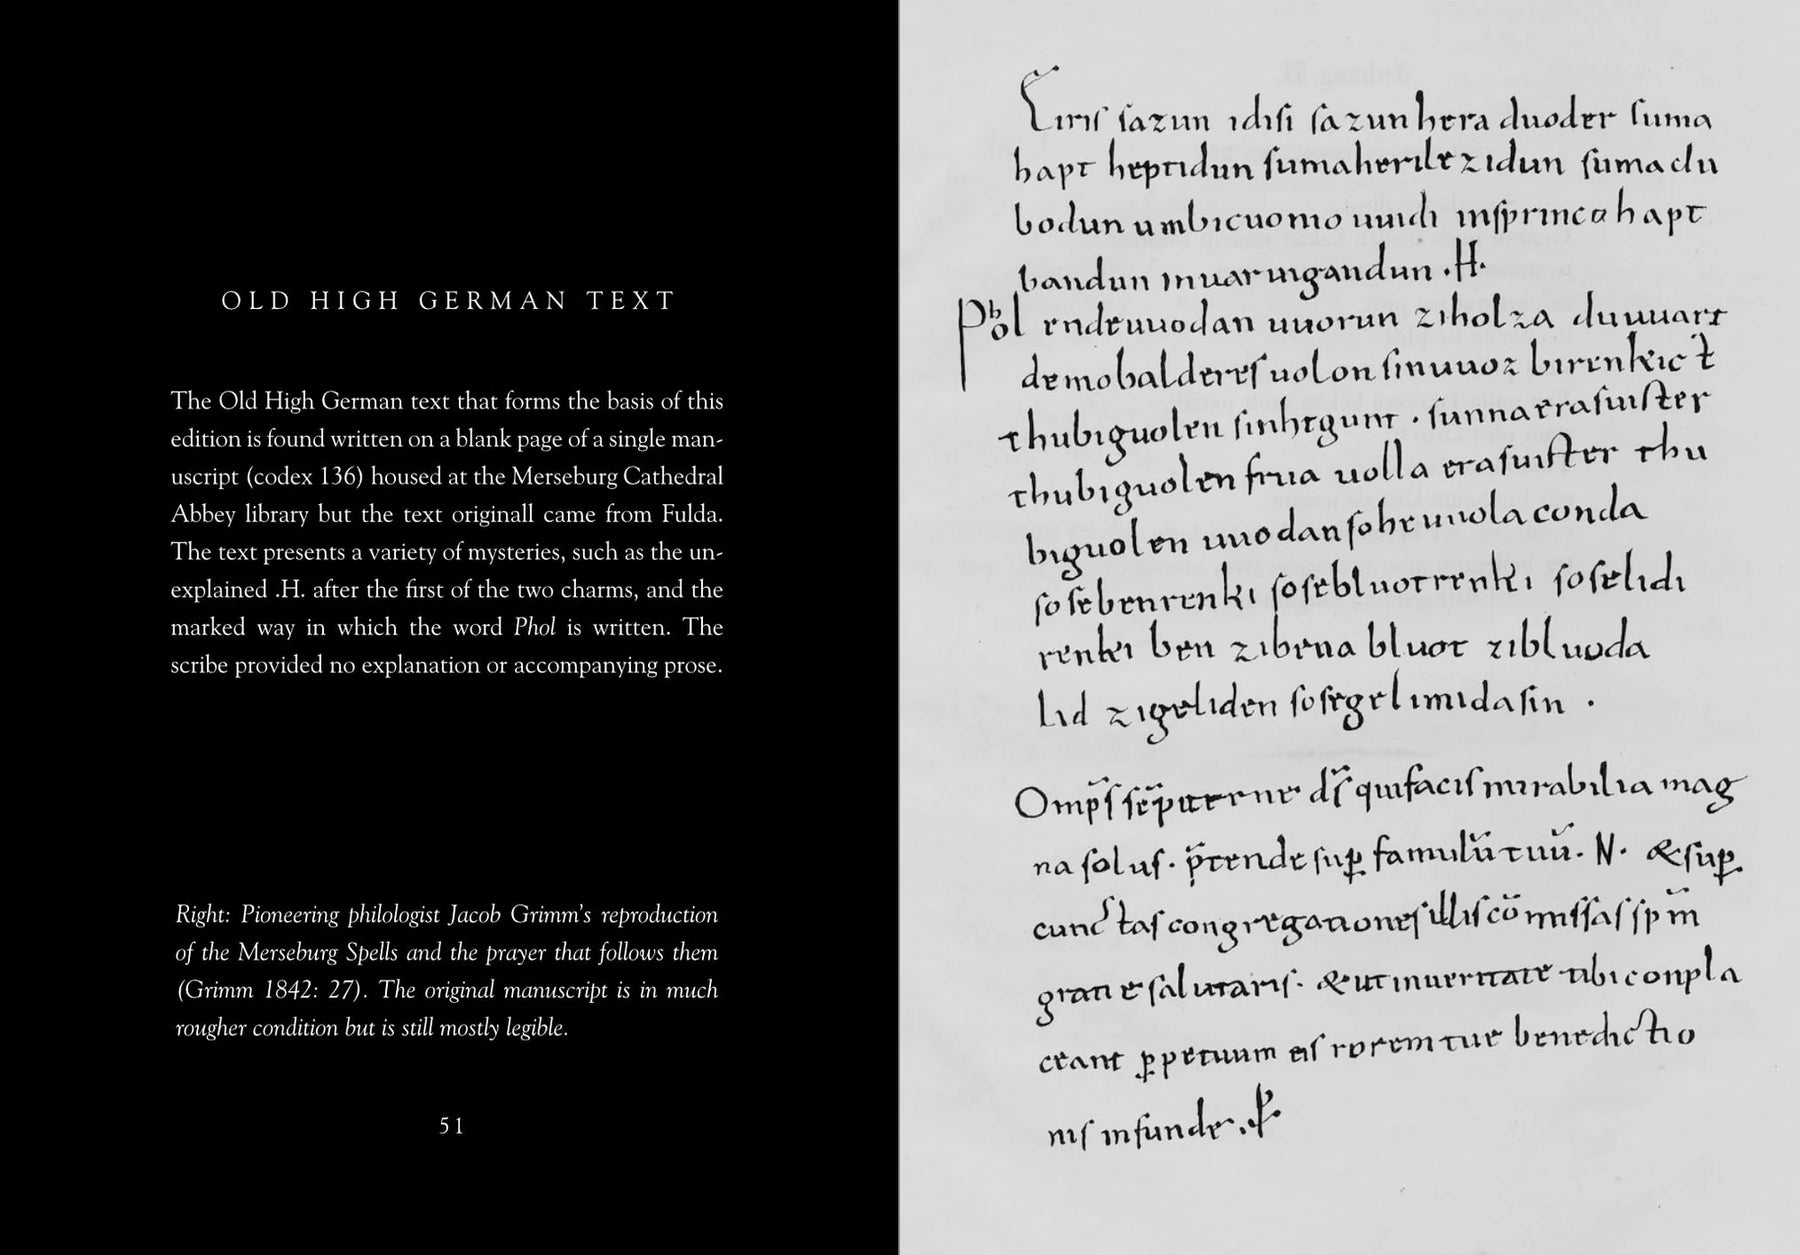 OLD HIGH GERMAN TEXT
The Old High German text that forms the basis of this
edition is found written on a blank page of a single man-
uscript (codex 136) housed at the Merseburg Cathedral
Abbey library but the text originall came from Fulda.
The text presents a variety of mysteries, such as the un-
explained .H. after the first of the two charms, and the
marked way in which the word Phol is written. The
scribe provided no explanation or accompanying prose.
Right: Pioneering philologist Jacob Grimm's reproduction
of the Merseburg Spells and the prayer that follows them
(Grimm 1842: 27). The original manuscript is in much
rougher condition but is still mostly legible.
51
Eiris ſazun idiſi ſazunhera duoder ſuma
hapt heptidun ſumaherilezidun ſumaclu
bodun umbicuomouuidi inſprincahapt
bandun inuaruigandun .H.
Phol endeuuodan uuorun ziholza duuuart
demobaldereſuolonſinuuoz birenkict
thubiguolen ſinhtgunt . ſunnaeraſuiſter
thubiguolenfriia uolla eraſuiſter thu
biguolen uuodanſoheuuolaconda
ſoſebenrenki ſoſebluotrenki ſoſelidi
renki ben zibena bluot zibluoda
lid zigeliden ſoſegelimidaſin .
Omp̄ſ ſēpiterne dſ̄ quifaciſmirabilia mag
na ſoluſ. p̄tende ſuꝑ famulū tuū. N. &ſuꝑ
cunctaſcongregationeſilliſcōmiſſaſſpm̄
gratie ſalutariſ. &utinueritate tibiconpla
ceant ꝑpetuum eiſ roremtue benedictio
niſ infunde.